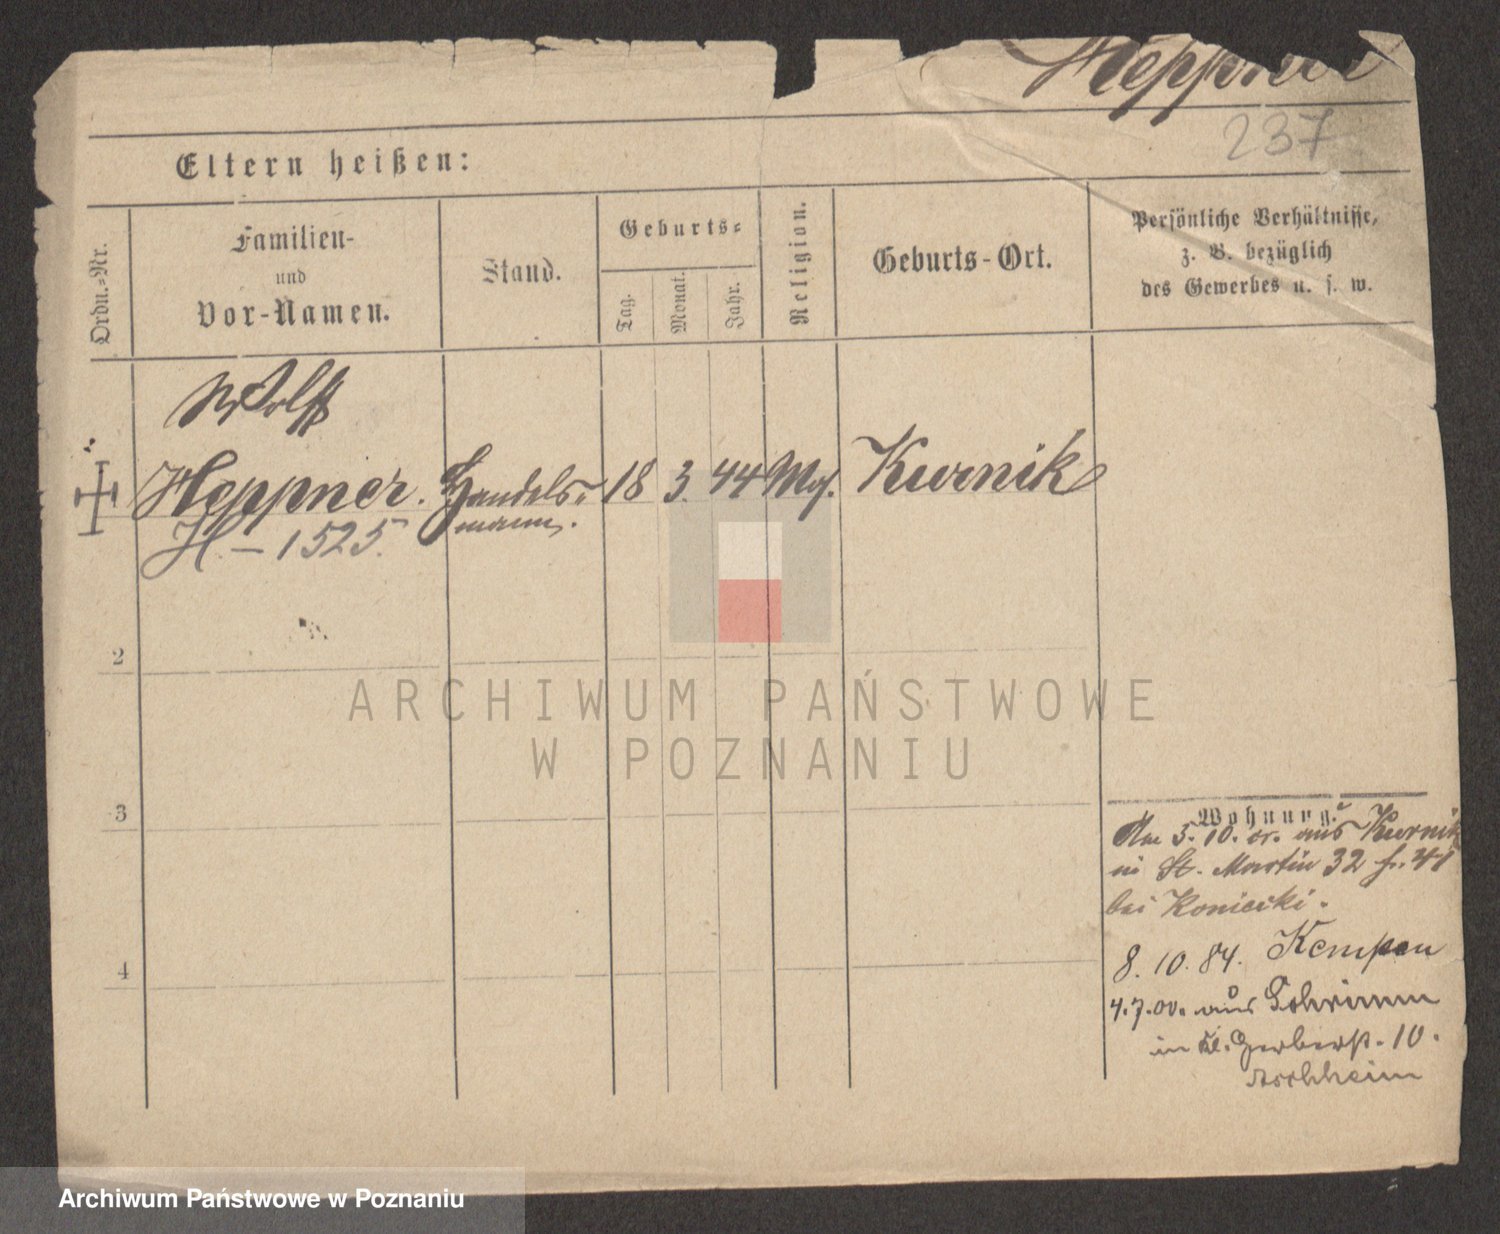 Heppner
237
Eltern heißen:
Ordn.-Nr.
Familien-
und
Vor-Namen.
Stand.
Geburts-
Tag.
Monat.
Jahr.
Religion.
Geburts-Ort.
Persönliche Verhältnisse,
z. B. bezüglich
des Gewerbes u. s. w.
Wolff
Heppner. Handels- 18 3. 44 Mos. Kurnik
mann.
H. - 1525.
2
3
4
Wohnung.
5. 10. cr. aus Kurnik
in St. Martin 32
bei Koniecki.
8. 10. 84. Kempen
4.7.00. aus Schrimm
in Kl. Gerberst. 10.
ARCHIWUM PAŃSTWOWE
W POZNANIU
Archiwum Państwowe w Poznaniu